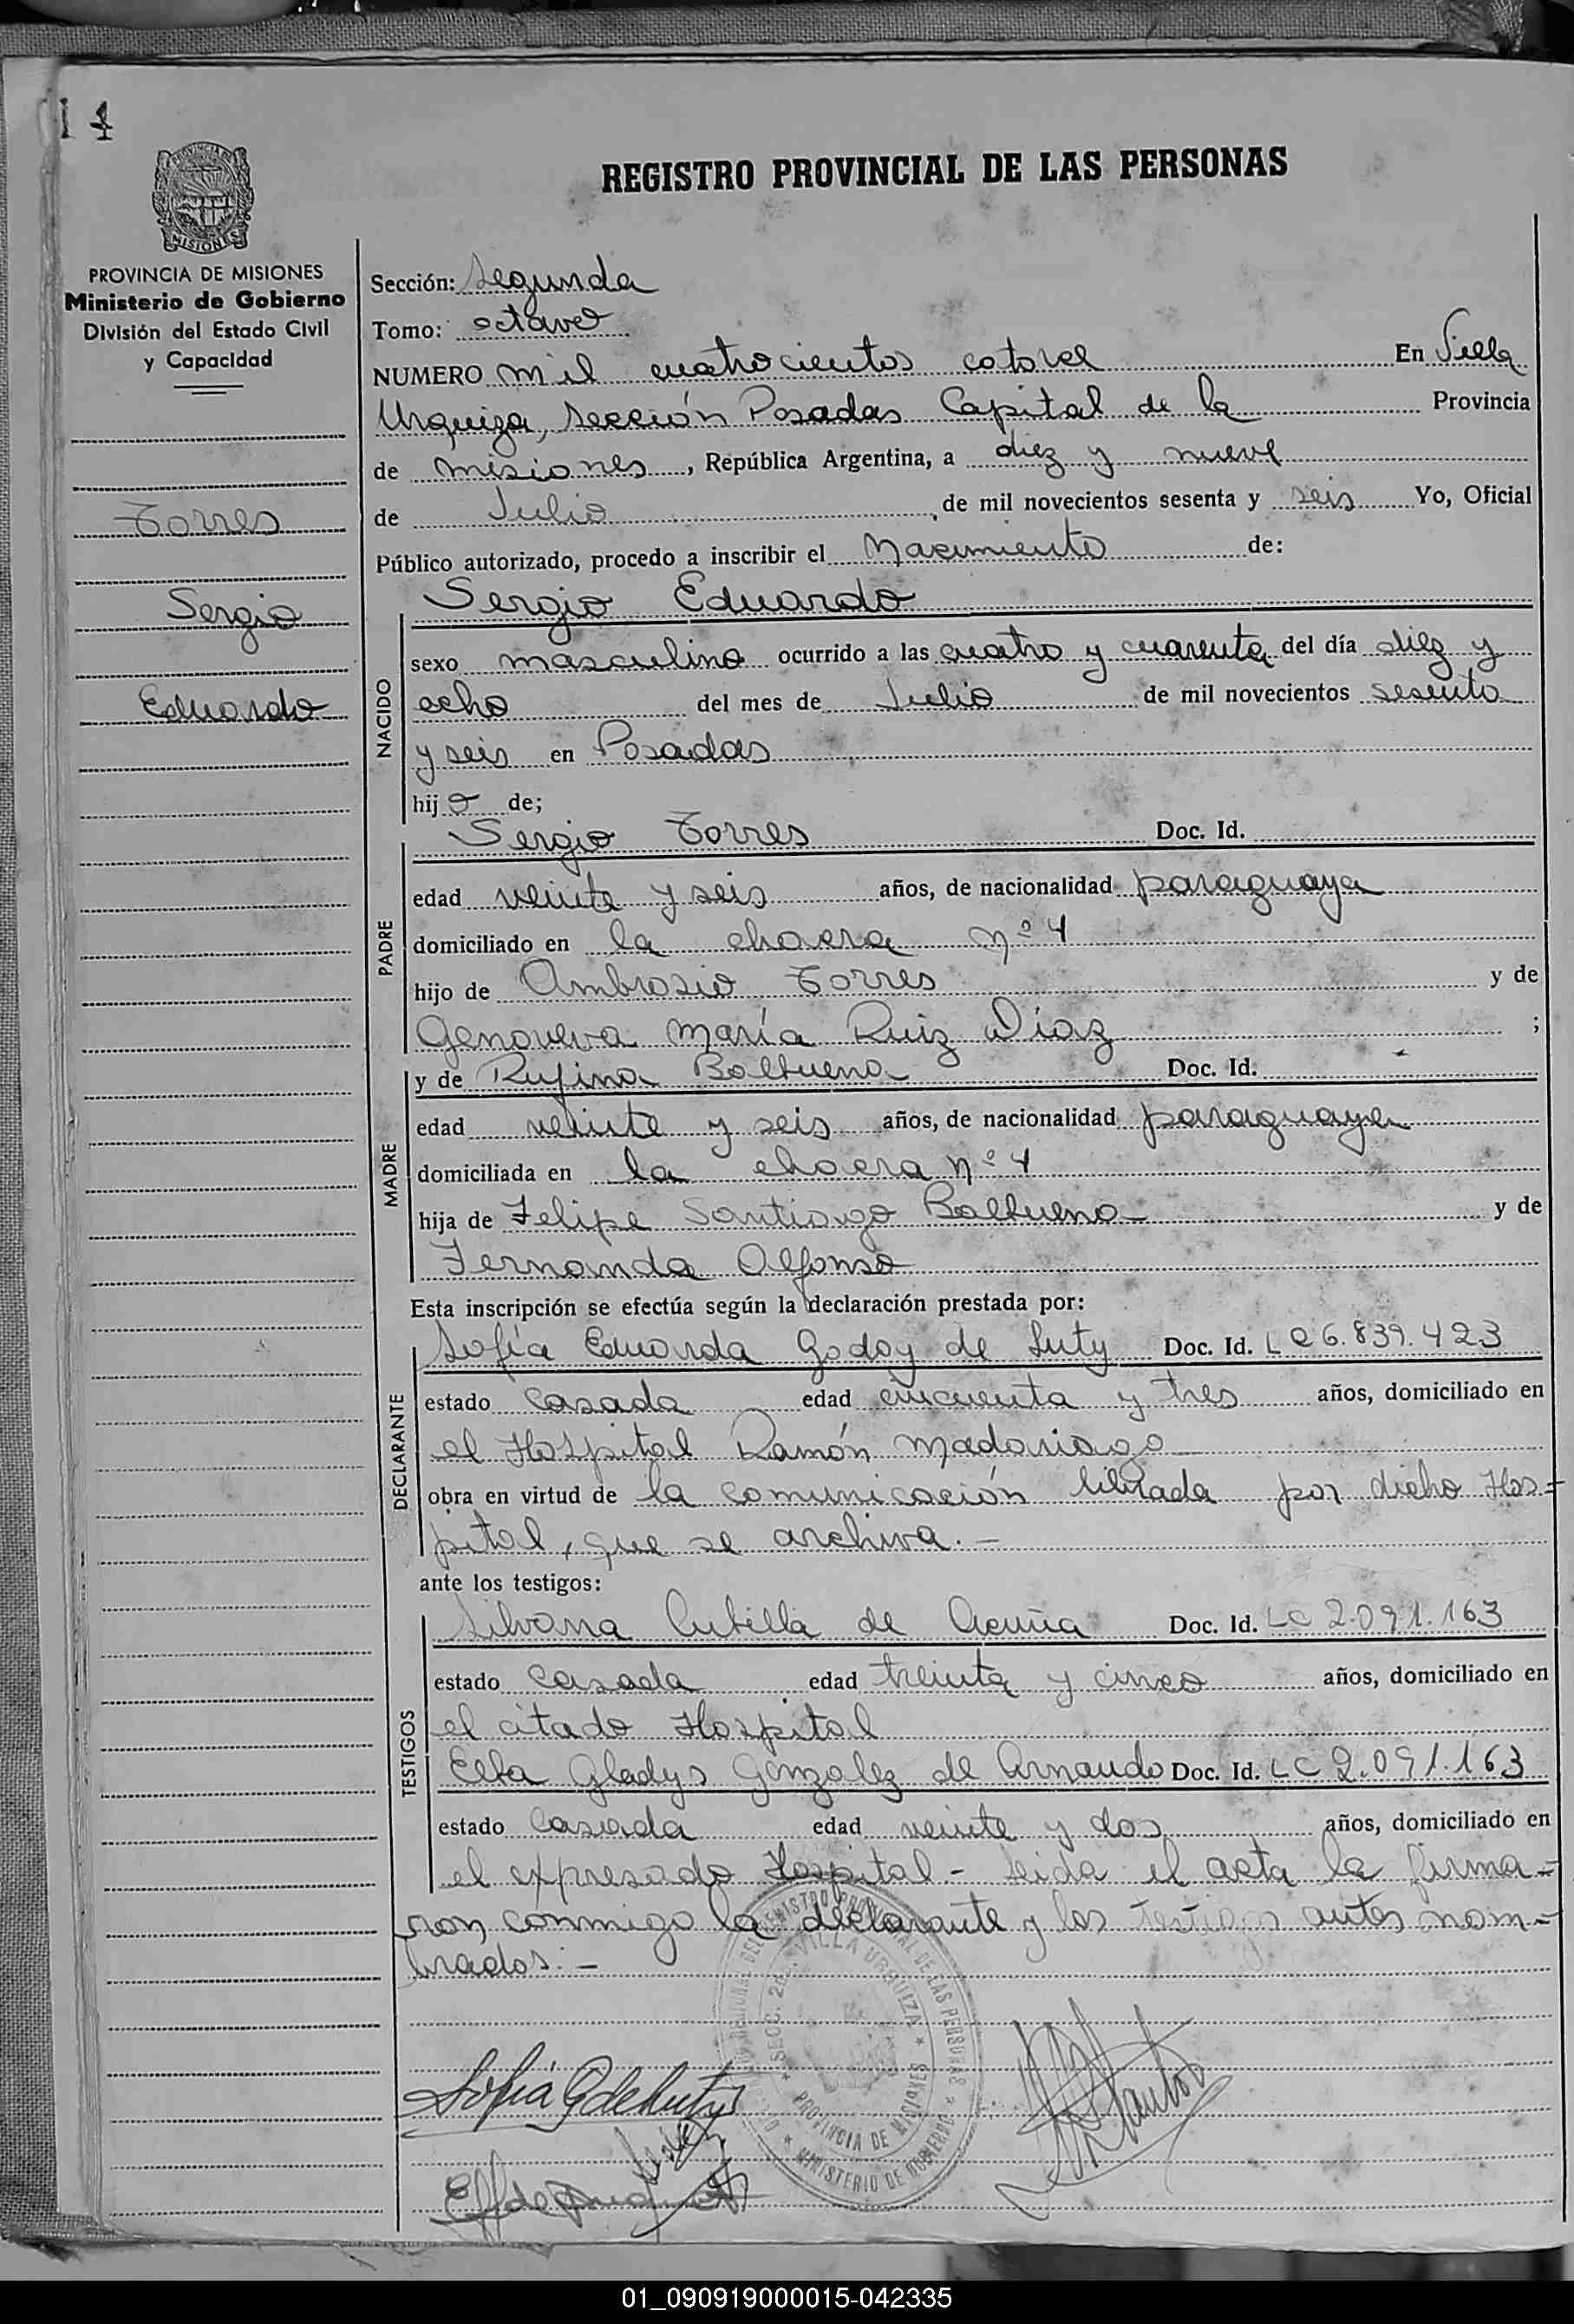 14
REGISTRO PROVINCIAL DE LAS PERSONAS
MISIONES
PROVINCIA DE MISIONES
Ministerio de Gobierno
División del Estado Civil
y Capacidad
Torres
Sergio
Eduardo
Sección: Segunda
Tomo: octavo
NUMERO mil cuatrocientos catorce En Villa
Urquiza, sección Posadas Capital de la Provincia
de misiones, República Argentina, a diez y nueve
de Julio, de mil novecientos sesenta y seis Yo, Oficial
Público autorizado, procedo a inscribir el Nacimiento de:
NACIDO
Sergio Eduardo
sexo masculino ocurrido a las cuatro y cuarenta del día diez y
ocho del mes de Julio de mil novecientos sesenta
y seis en Posadas
hijo de;
PADRE
Sergio Torres Doc. Id.
edad veinte y seis años, de nacionalidad paraguaya
domiciliado en la chacra nº 4
hijo de Ambrosio Torres y de
Genoveva María Ruiz Díaz ;
MADRE
y de Rufina Balbuena Doc. Id.
edad veinte y seis años, de nacionalidad paraguaya
domiciliada en la chacra nº 4
hija de Felipe Santiago Balbuena y de
Fernanda Alfonso
Esta inscripción se efectúa según la declaración prestada por:
DECLARANTE
Sofía Eduarda Godoy de Luty Doc. Id. LC 6.839.423
estado casada edad cincuenta y tres años, domiciliado en
el Hospital Ramón Madariaga
obra en virtud de la comunicación librada por dicho Hos=
pital, que se archiva.-
ante los testigos:
TESTIGOS
Silvana Cubilla de Acuña Doc. Id. LC 2.091.163
estado casada edad treinta y cinco años, domiciliado en
el citado Hospital
Elba Gladys Gonzalez de Arnaudo Doc. Id. LC 2.091.163
estado casada edad veinte y dos años, domiciliado en
el expresado Hospital - Leida el acta la firma=
ron conmigo la declarante y los testigos antes nom=
brados.-
SECC. 2a. VILLA URQUIZA
PROVINCIA DE MISIONES
MINISTERIO DE GOBIERNO
Sofía G de Luty
01_090919000015-042335